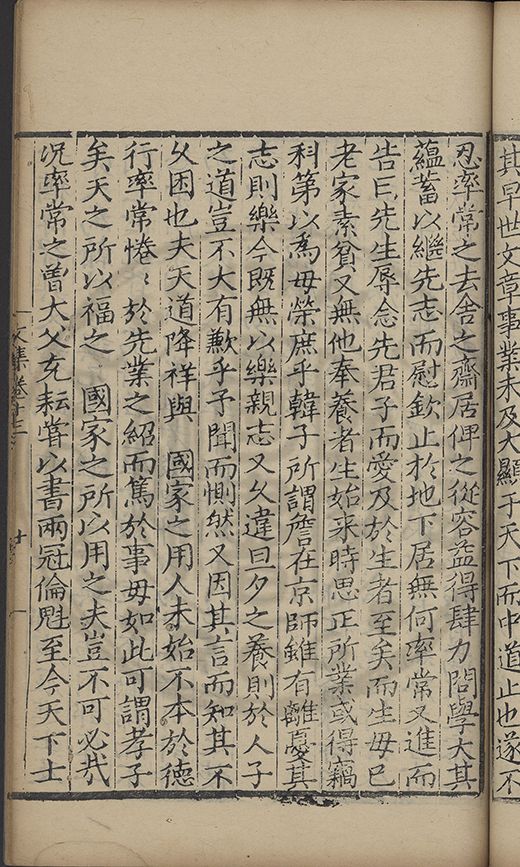 其早世文章事業未及大顯于天下而中道止也遂不
忍率常之去舍之齋居俾之從容益得肆力問學大其
蘊蓄以繼先志而慰欽止於地下居無何率常又進而
告曰先生辱念先君子而愛及於生者至矣而生毋已
老家素貧又無他奉養者生始來時思正所業或得竊
科第以為毋榮庶乎韓子所謂詹在京師雖有離憂其
志則樂今既無以樂親志又乆違旦夕之養則於人子
之道豈不大有歉乎予聞而惻然又因其言而知其不
乆困也夫天道降祥與 國家之用人未始不本於德
行率常惓〻於先業之紹而篤於事毋如此可謂孝子
矣天之所以福之 國家之所以用之夫豈不可必㢤
况率常之曽大父充耘甞以書兩冠倫魁至今天下士
文集卷十三 十